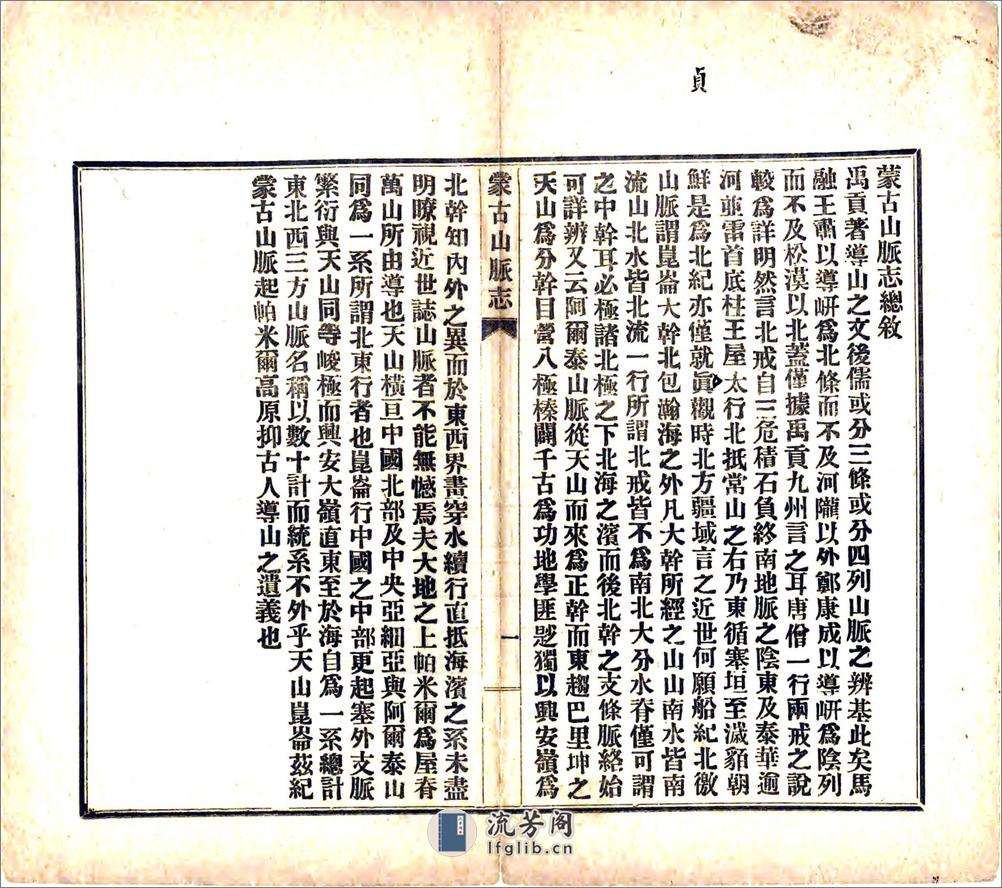 貞
蒙古山脈志總敘
禹貢著導山之文後儒或分三條或分四列山脈之辨基此矣馬
融王肅以導岍爲北條而不及河隴以外鄭康成以導岍爲陰列
而不及松漠以北蓋僅據禹貢九州言之耳唐僧一行兩戒之說
較爲詳明然言北戒自三危積石負終南地脈之陰東及泰華逾
河並雷首底柱王屋太行北抵常山之右乃東循塞垣至濊貊朝
鮮是爲北紀亦僅就貞觀時北方疆域言之近世何願船紀北徼
山脈謂崑崙大幹北包瀚海之外凡大幹所經之山山南水皆南
流山北水皆北流一行所謂北戒皆不爲南北大分水脊僅可謂
之中幹耳必極諸北極之下北海之濱而後北幹之支條脈絡始
可詳辨又云阿爾泰山脈從天山而來爲正幹而東趨巴里坤之
天山爲分幹目營八極榛闢千古爲功地學匪尟獨以興安嶺爲
蒙古山脈志
一
北幹知內外之異而於東西界畫穿水續行直抵海濱之系未盡
明瞭視近世誌山脈者不能無憾焉夫大地之上帕米爾爲屋脊
萬山所由導也天山橫亘中國北部及中央亞細亞與阿爾泰山
同爲一系所謂北東行者也崑崙行中國之中部更起塞外支脈
繁衍與天山同等峻極而興安大嶺直東至於海自爲一系總計
東北西三方山脈名稱以數十計而統系不外乎天山崑崙茲紀
蒙古山脈起帕米爾高原抑古人導山之遺義也
流芳阁
lfglib.cn